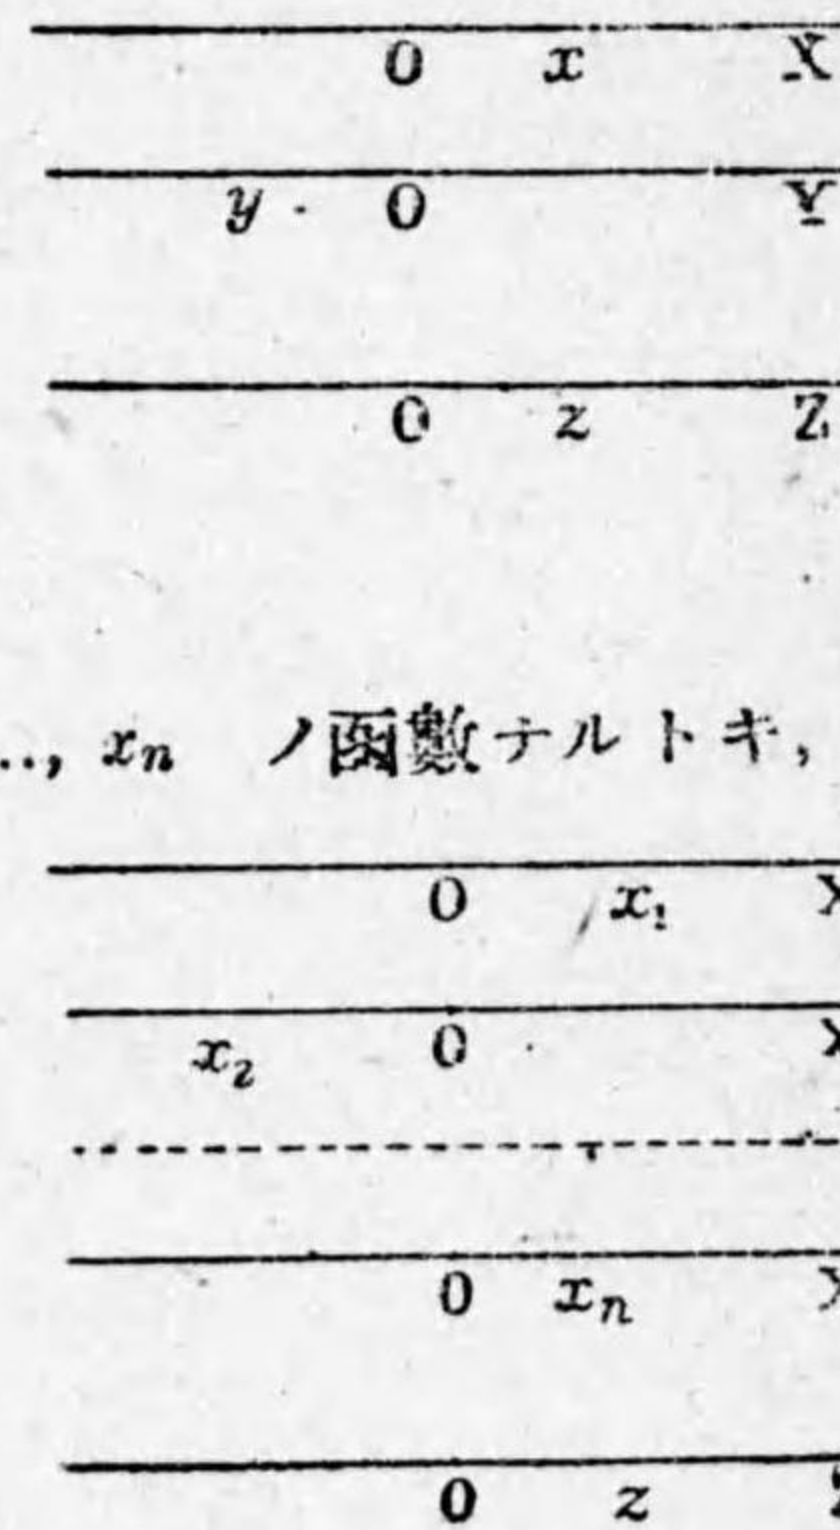 0 x X
y 0 Y
0 z Z
.., xn ノ函數ナルトキ,
0 x1
x2 0
0 xn
0 z